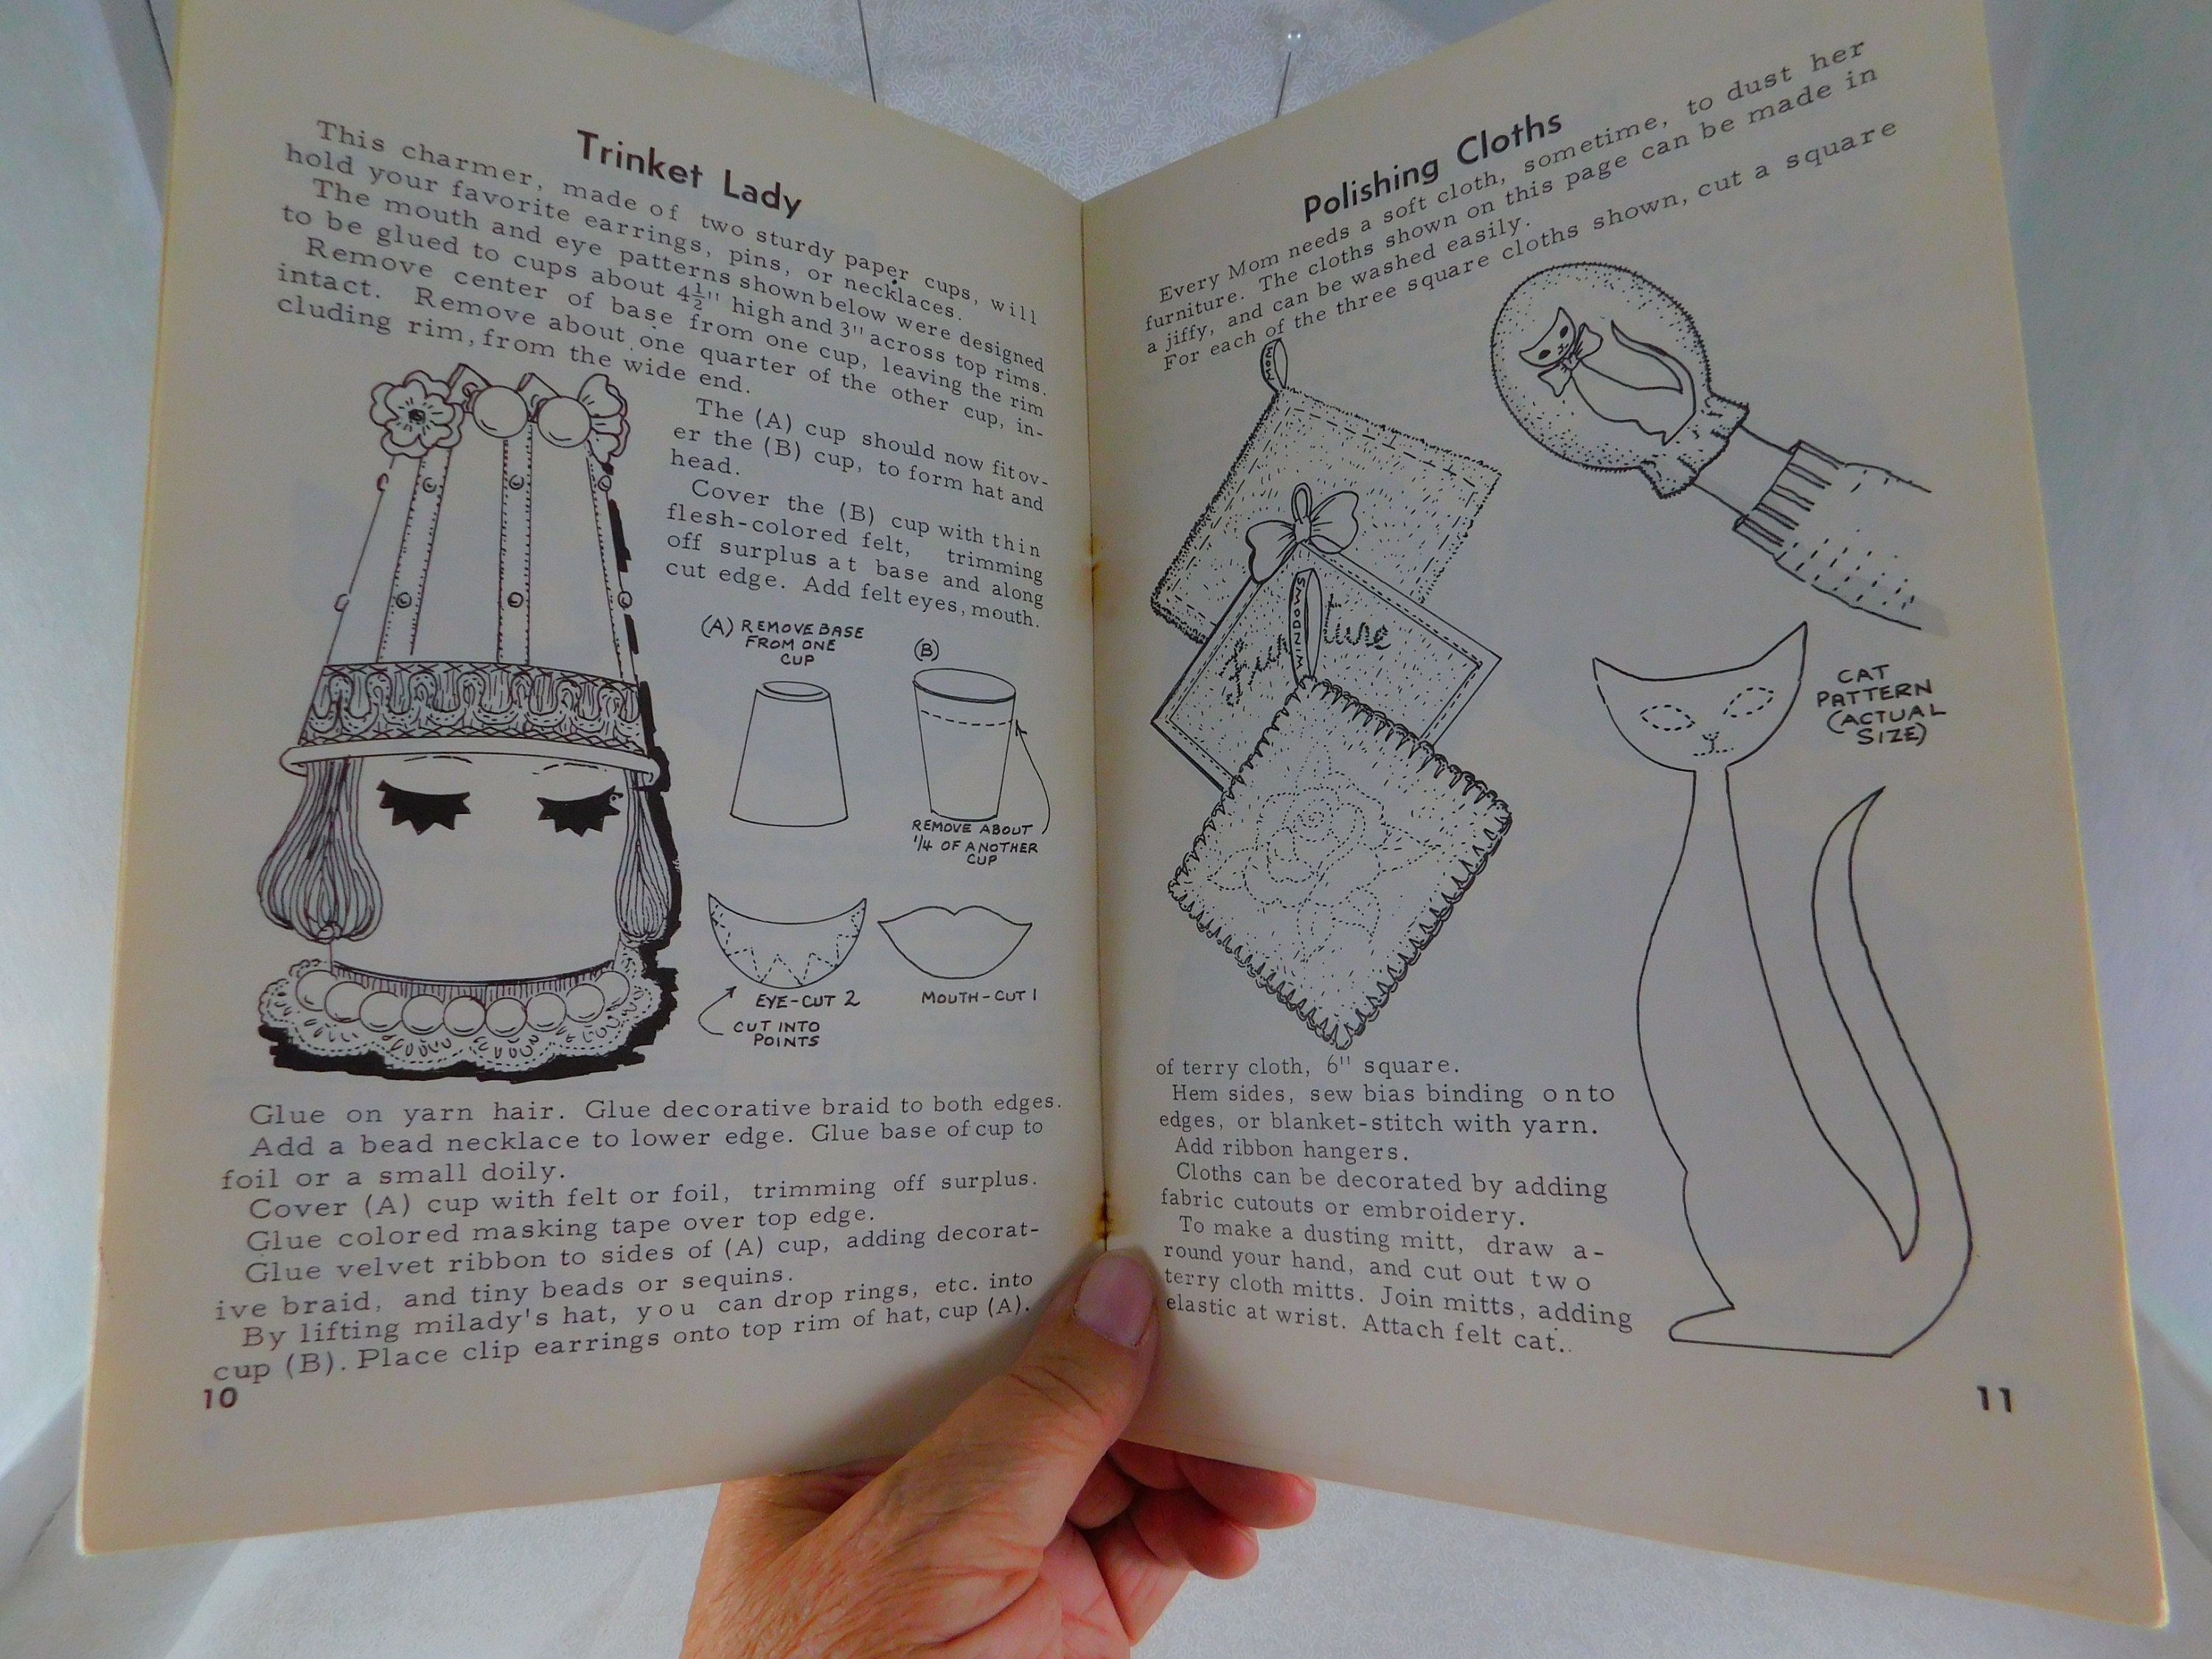 Trinket Lady
This charmer, made of two sturdy paper cups, will
hold your favorite earrings, pins, or necklaces.
The mouth and eye patterns shown below were designed
to be glued to cups about 4½" high and 3" across top rims.
Remove center of base from one cup, leaving the rim
intact. Remove about one quarter of the other cup, in-
cluding rim, from the wide end.
The (A) cup should now fit ov-
er the (B) cup, to form hat and
head.
Cover the (B) cup with thin
flesh-colored felt, trimming
off surplus at base and along
cut edge. Add felt eyes, mouth.
(A) REMOVE BASE
FROM ONE
CUP
(B)
REMOVE ABOUT
1/4 OF ANOTHER
CUP
EYE-CUT 2
MOUTH-CUT 1
CUT INTO
POINTS
Glue on yarn hair. Glue decorative braid to both edges.
Add a bead necklace to lower edge. Glue base of cup to
foil or a small doily.
Cover (A) cup with felt or foil, trimming off surplus.
Glue colored masking tape over top edge.
Glue velvet ribbon to sides of (A) cup, adding decorat-
ive braid, and tiny beads or sequins.
By lifting milady's hat, you can drop rings, etc. into
cup (B). Place clip earrings onto top rim of hat, cup (A).
10
Polishing Cloths
Every Mom needs a soft cloth, sometime, to dust her
furniture. The cloths shown on this page can be made in
a jiffy, and can be washed easily.
For each of the three square cloths shown, cut a square
MOM
WINDOWS
CAT
PATTERN
(ACTUAL
SIZE)
of terry cloth, 6" square.
Hem sides, sew bias binding onto
edges, or blanket-stitch with yarn.
Add ribbon hangers.
Cloths can be decorated by adding
fabric cutouts or embroidery.
To make a dusting mitt, draw a-
round your hand, and cut out two
terry cloth mitts. Join mitts, adding
elastic at wrist. Attach felt cat.
11